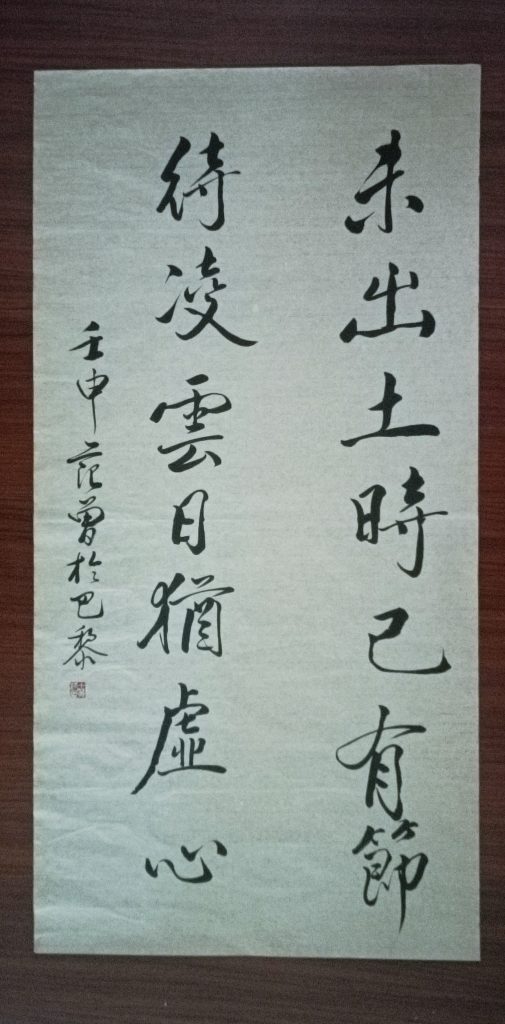 未出土時已有節
待凌雲日猶虛心
壬申范曾於巴黎